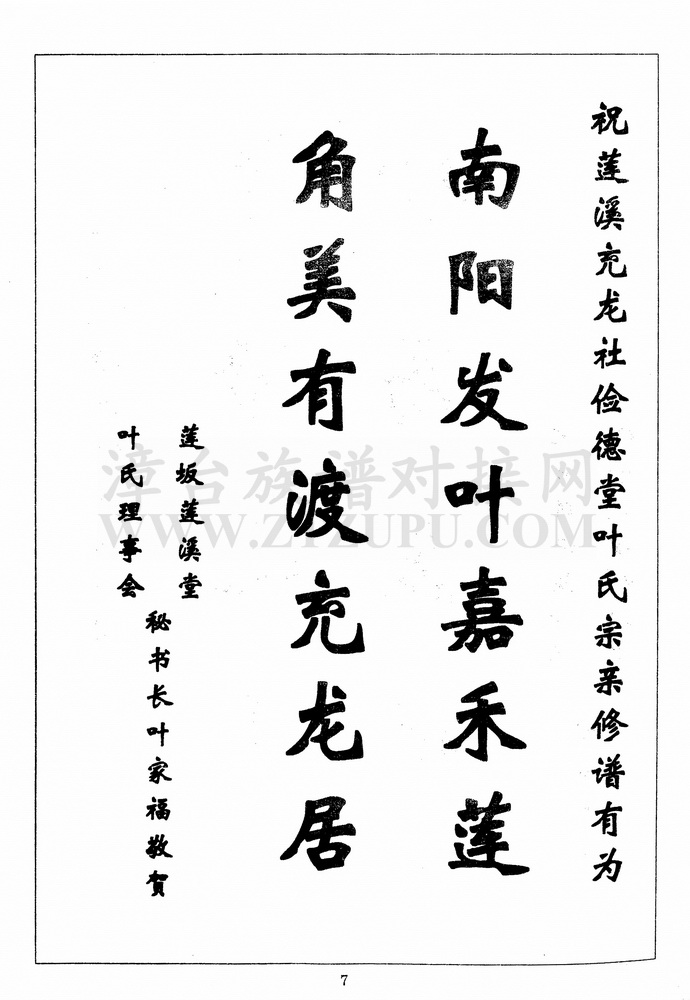 祝莲溪充龙社俭德堂叶氏宗亲修谱有为
南阳发叶嘉禾莲
角美有渡充龙居
莲坂莲溪堂
叶氏理事会
秘书长叶家福敬贺
漳台族谱对接网
WWW.ZTZUPU.COM
7